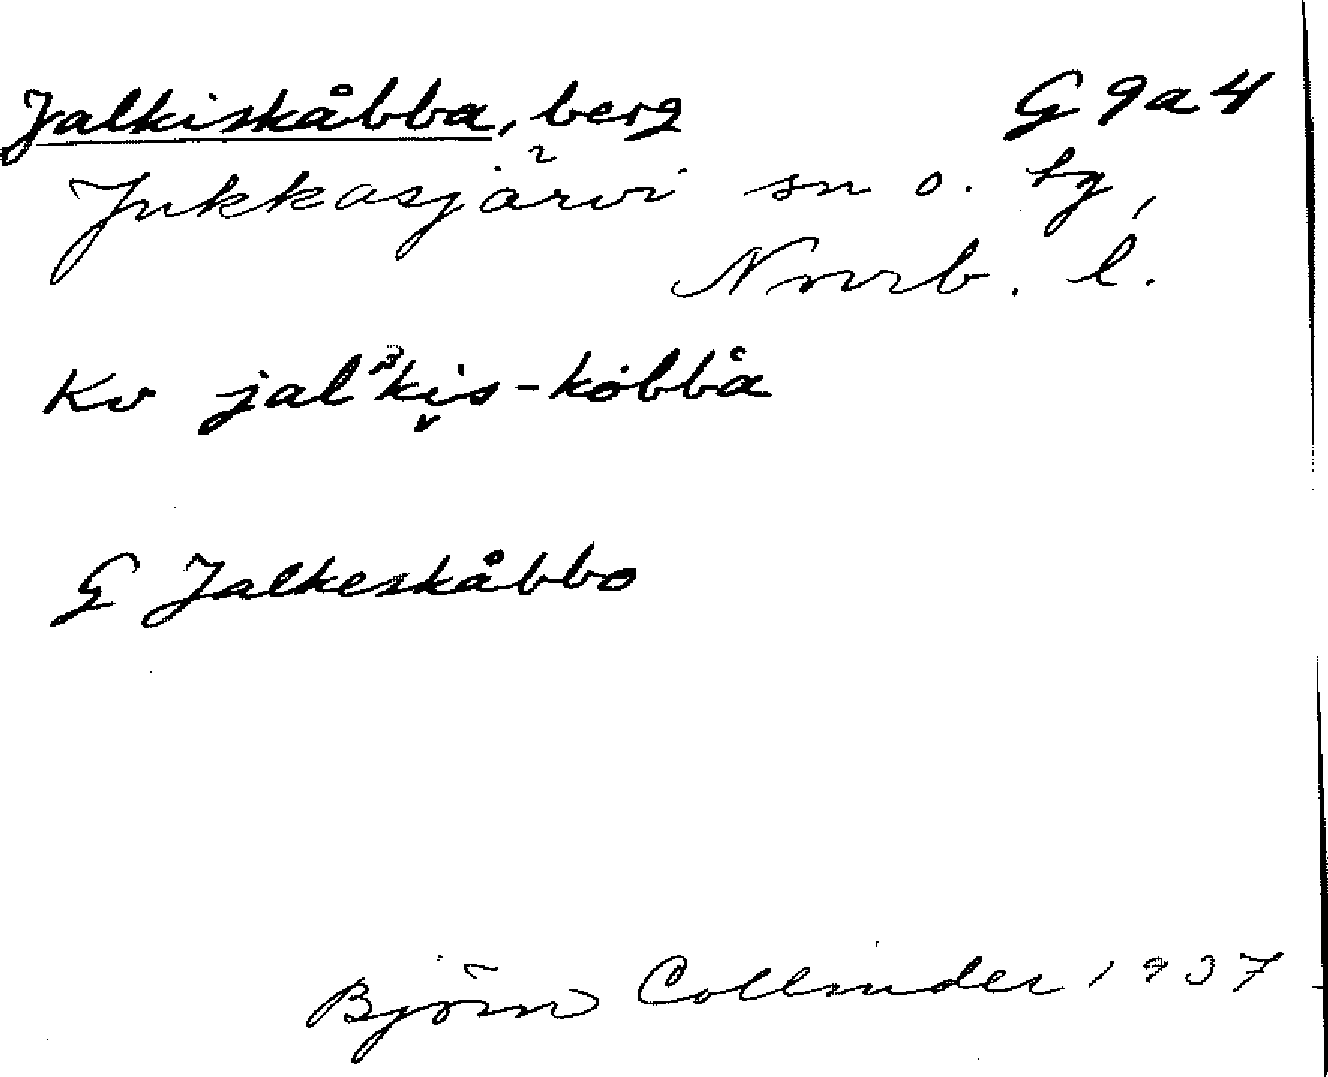 Jalkiskåbba, berg G 9a4
Jukkasjärvi sn o. tg,
Norrb. l.
Kv jalˀkis-kobbå
G Jalkeskåbbo
Björn Collinder 1937